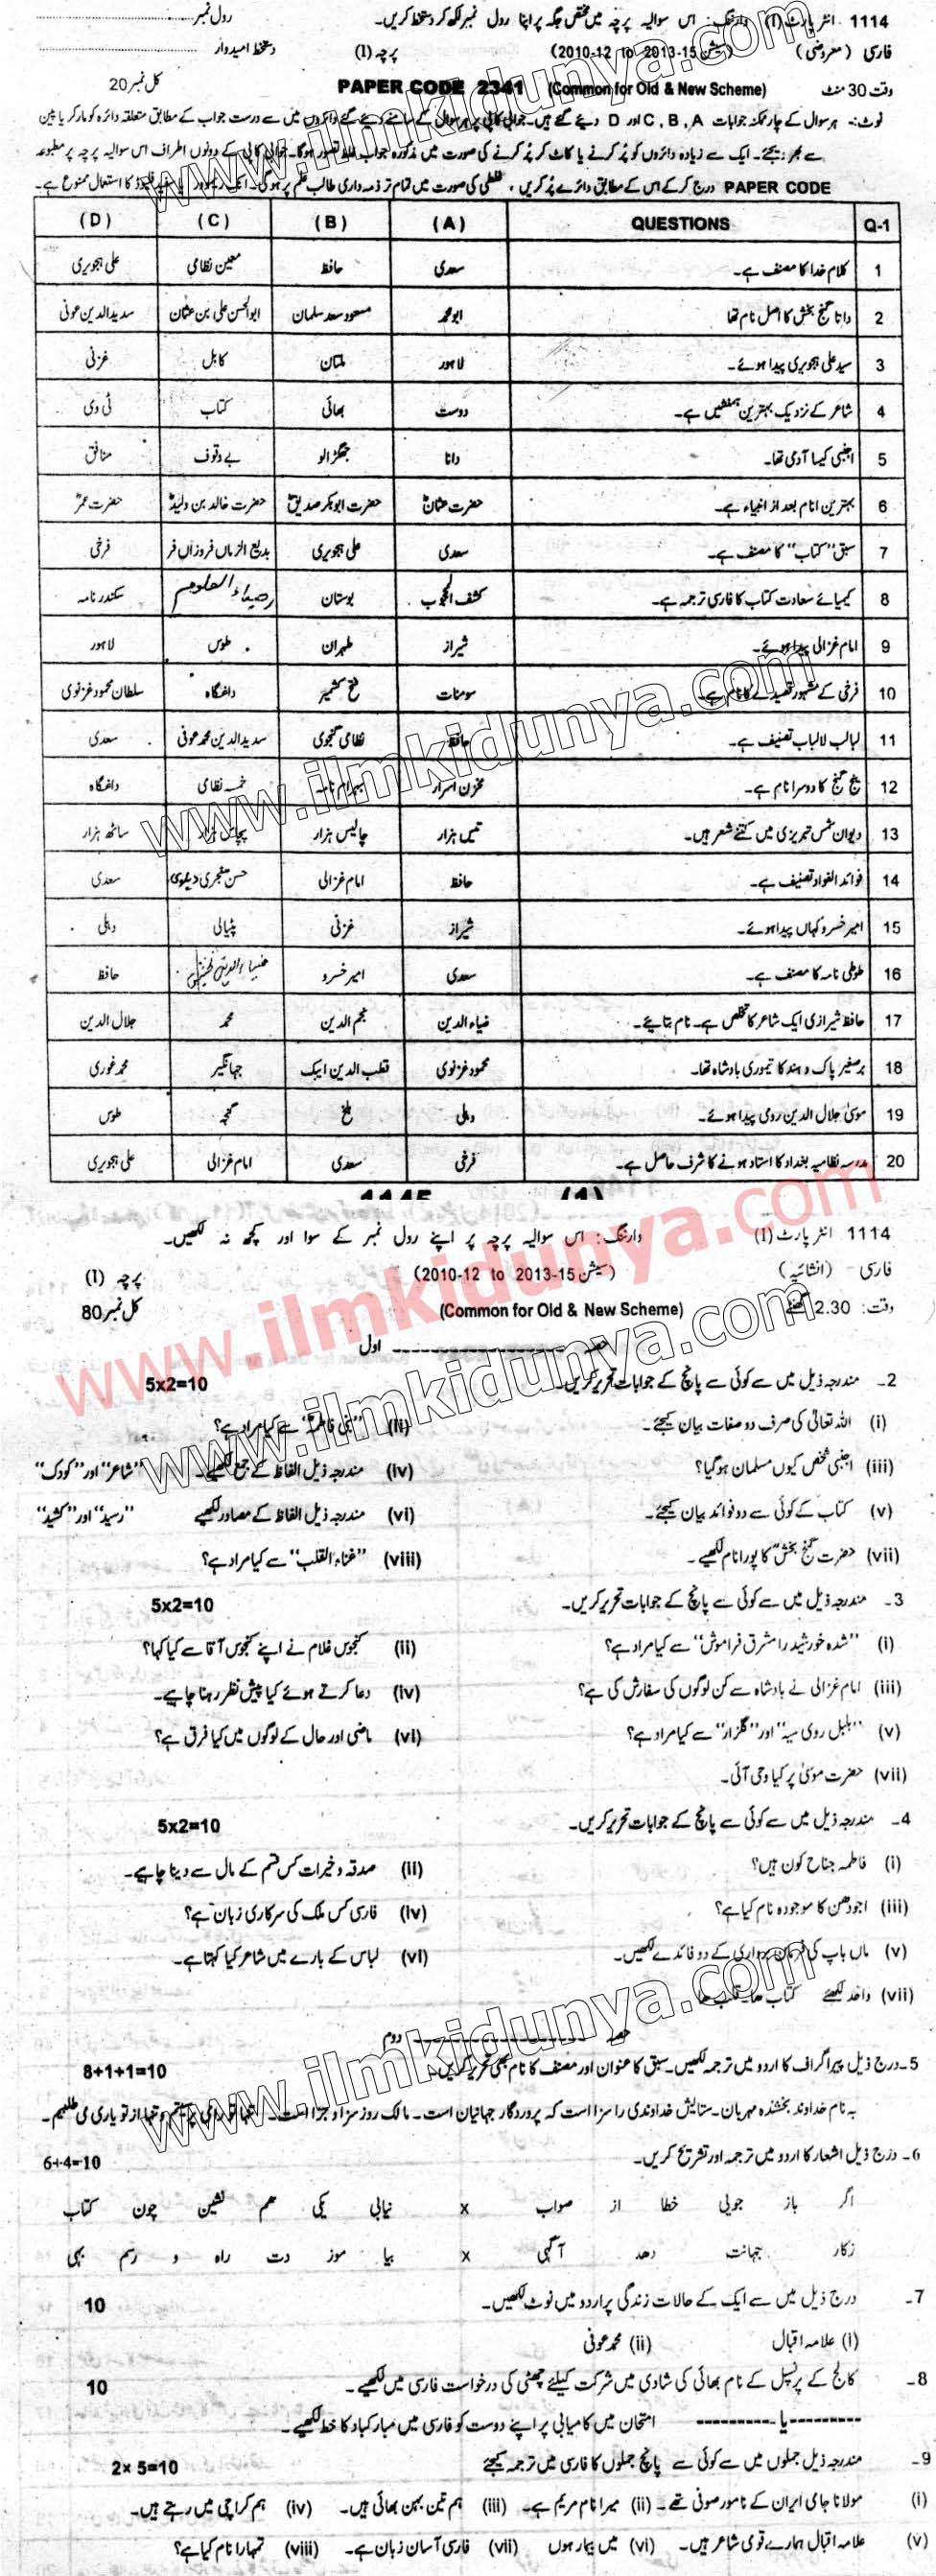 1114 انٹر پارٹ (I) وارننگ: اس سوالیہ پرچہ میں مختص جگہ پر اپنا رول نمبر لکھ کر دستخط کریں۔ رول نمبر
فارسی (معروضی) (سیشن 2013-15 to 2010-12) پرچہ (I) دستخط امیدوار
وقت 30 منٹ PAPER CODE 2341 (Common for Old & New Scheme) کل نمبر 20
نوٹ:۔ ہر سوال کے چار ممکنہ جوابات A ,B ,C اور D دیئے گئے ہیں۔ جوابی کاپی پر ہر سوال کے سامنے دیئے گئے دائروں میں سے درست جواب کے مطابق متعلقہ دائرہ کو مارکر یا پین
سے بھر دیجئے۔ ایک سے زیادہ دائروں کو پُر کرنے یا کاٹ کر پُر کرنے کی صورت میں مذکورہ جواب غلط تصور ہوگا۔ جوابی کاپی کے دونوں اطراف اس سوالیہ پرچہ پر مطبوعہ
PAPER CODE درج کرکے اس کے مطابق دائرے پُر کریں، غلطی کی صورت میں تمام تر ذمہ داری طالب علم پر ہوگی۔ انک ریموور یا سفید فلیوڈ کا استعمال ممنوع ہے۔
Q-1 QUESTIONS (A) (B) (C) (D)
1 کلام خدا کا مصنف ہے۔ سعدی حافظ معین نظامی علی ہجویری
2 داتا گنج بخش کا اصل نام تھا ابو محمد مسعود سعد سلمان ابوالحسن علی بن عثمان سدید الدین عوفی
3 سید علی ہجویری پیدا ہوئے۔ لاہور ملتان کابل غزنی
4 شاعر کے نزدیک بہترین ہمنشیں ہے۔ دوست بھائی کتاب ٹی وی
5 اجنبی کیسا آدمی تھا۔ دانا جھگڑالو بے وقوف منافق
6 بہترین انام بعد از انبیاء ہے۔ حضرت عثمانؓ حضرت ابوبکر صدیقؓ حضرت خالد بن ولیدؓ حضرت عمرؓ
7 سبق "کتاب" کا مصنف ہے۔ سعدی علی ہجویری بدیع الزماں فروزاں فر فرخی
8 کیمیائے سعادت کتاب کا فارسی ترجمہ ہے۔ کشف المحجوب بوستان العلوم سکندر نامہ
9 امام غزالی پیدا ہوئے۔ شیراز طہران طوس لاہور
10 فرخی کے مشہور قصیدے کا نام ہے۔ سومنات فتح کشمیر داغگاہ سلطان محمود غزنوی
11 لباب لالباب تصنیف ہے۔ حافظ نظامی گنجوی سدید الدین محمد عوفی سعدی
12 پنج گنج کا دوسرا نام ہے۔ مخزن اسرار بہرام نامہ خمسہ نظامی داغگاہ
13 دیوان شمس تبریزی میں کتنے شعر ہیں۔ تیس ہزار چالیس ہزار پچاس ہزار ساٹھ ہزار
14 فوائد الفواد تصنیف ہے۔ حافظ امام غزالی حسن سنجری دہلوی سعدی
15 امیر خسرو کہاں پیدا ہوئے۔ شیراز غزنی پٹیالی دہلی
16 طوطی نامہ کا مصنف ہے۔ سعدی امیر خسرو ضیاء الدین حافظ
17 حافظ شیرازی ایک شاعر کا تخلص ہے۔ نام بتایئے۔ ضیاء الدین نجم الدین محمد جلال الدین
18 برصغیر پاک و ہند کا تیموری بادشاہ تھا۔ محمود غزنوی قطب الدین ایبک جہانگیر محمد غوری
19 مولیٰ جلال الدین رومی پیدا ہوئے۔ دہلی بلخ گنجہ طوس
20 مدرسہ نظامیہ بغداد کا استاد ہونے کا شرف حاصل ہے۔ فرخی سعدی امام غزالی علی ہجویری
1145 (1)
1114 انٹر پارٹ (I) وارننگ: اس سوالیہ پرچہ پر اپنے رول نمبر کے سوا اور کچھ نہ لکھیں۔
فارسی - (انشائیہ) (سیشن 2013-15 to 2010-12) پرچہ (I)
وقت: 2.30 گھنٹے (Common for Old & New Scheme) کل نمبر 80
حصہ ---------- اول
2۔ مندرجہ ذیل میں سے کوئی سے پانچ کے جوابات تحریر کریں۔ 5x2=10
(i) اللہ تعالیٰ کی صرف دو صفات بیان کیجئے۔ (ii) "بنی فاطمہ" سے کیا مراد ہے؟
(iii) اجنبی شخص کیوں مسلمان ہوگیا؟ (iv) مندرجہ ذیل الفاظ کے جمع لکھیے۔ "شاعر" اور "کودک"
(v) کتاب کے کوئی سے دو فوائد بیان کیجئے۔ (vi) مندرجہ ذیل الفاظ کے مصادر لکھیے "رسید" اور "کشید"
(vii) حضرت گنج بخشؒ کا پورا نام لکھیے۔ (viii) "غناء القلب" سے کیا مراد ہے؟
3۔ مندرجہ ذیل میں سے کوئی سے پانچ کے جوابات تحریر کریں۔ 5x2=10
(i) "شدہ خورشید را مشرق فراموش" سے کیا مراد ہے؟ (ii) کنجوس غلام نے اپنے کنجوس آقا سے کیا کہا؟
(iii) امام غزالی نے بادشاہ سے کن لوگوں کی سفارش کی ہے؟ (iv) دعا کرتے ہوئے کیا پیش نظر رہنا چاہیے۔
(v) "بلبل روی سیہ" اور "گلزار" سے کیا مراد ہے؟ (vi) ماضی اور حال کے لوگوں میں کیا فرق ہے؟
(vii) حضرت موسیٰ پر کیا وحی آئی۔
4۔ مندرجہ ذیل میں سے کوئی سے پانچ کے جوابات تحریر کریں۔ 5x2=10
(i) فاطمہ جناح کون ہیں؟ (ii) صدقہ و خیرات کس قسم کے مال سے دینا چاہیے۔
(iii) اجودھن کا موجودہ نام کیا ہے؟ (iv) فارسی کس ملک کی سرکاری زبان ہے؟
(v) ماں باپ کی فرماں برداری کے دو فائدے لکھیں۔ (vi) لباس کے بارے میں شاعر کیا کہتا ہے۔
(vii) واحد لکھئے کتاب ھا۔ قلب ھا
حصہ ---------- دوم
5۔ درج ذیل پیراگراف کا اردو میں ترجمہ لکھیں۔ سبق کا عنوان اور مصنف کا نام بھی تحریر کریں۔ 8+1+1=10
بہ نام خداوند بخشندہ مہربان۔ ستایش خداوندی را سزا است کہ پروردگار جہانیان است۔ مالک روز سزا و جزا است۔ تنہا تو را می پرستیم و تنہا از تو یاری می طلبیم۔
6۔ درج ذیل اشعار کا اردو میں ترجمہ اور تشریح کریں۔ 6+4=10
اگر باز جویی خطا از صواب x نیابی یکی ھم نشین چون کتاب
زکار جہانت دھد آگہی x بیا موز دت راہ و رسم بہی
7۔ درج ذیل میں سے ایک کے حالات زندگی پر اردو میں نوٹ لکھیں۔ 10
(i) علامہ اقبال (ii) محمد عوفی
8۔ کالج کے پرنسپل کے نام بھائی کی شادی میں شرکت کیلئے چھٹی کی درخواست فارسی میں لکھیے۔ 10
---------یا--------- امتحان میں کامیابی پر اپنے دوست کو فارسی میں مبارکباد کا خط لکھیے۔
9۔ مندرجہ ذیل جملوں میں سے کوئی سے پانچ جملوں کا فارسی میں ترجمہ کیجئے 2x5=10
(i) مولانا جامی ایران کے نامور صوفی تھے۔ (ii) میرا نام مریم ہے۔ (iii) ہم تین بہن بھائی ہیں۔ (iv) ہم کراچی میں رہتے ہیں۔
(v) علامہ اقبال ہمارے قومی شاعر ہیں۔ (vi) میں بیمار ہوں (vii) فارسی آسان زبان ہے۔ (viii) تمہارا نام کیا ہے؟
www.ilmkidunya.com
www.ilmkidunya.com
www.ilmkidunya.com
www.ilmkidunya.com
www.ilmkidunya.com